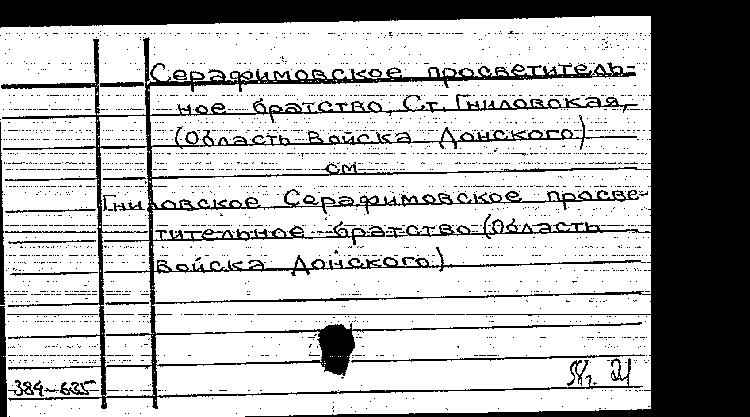 Серафимовское просветитель-
ное братство, Ст. Гниловская,
(Область Войска Донского)
см
Гниловское Серафимовское просве-
тительное братство (Область
Войска Донского)
384-685